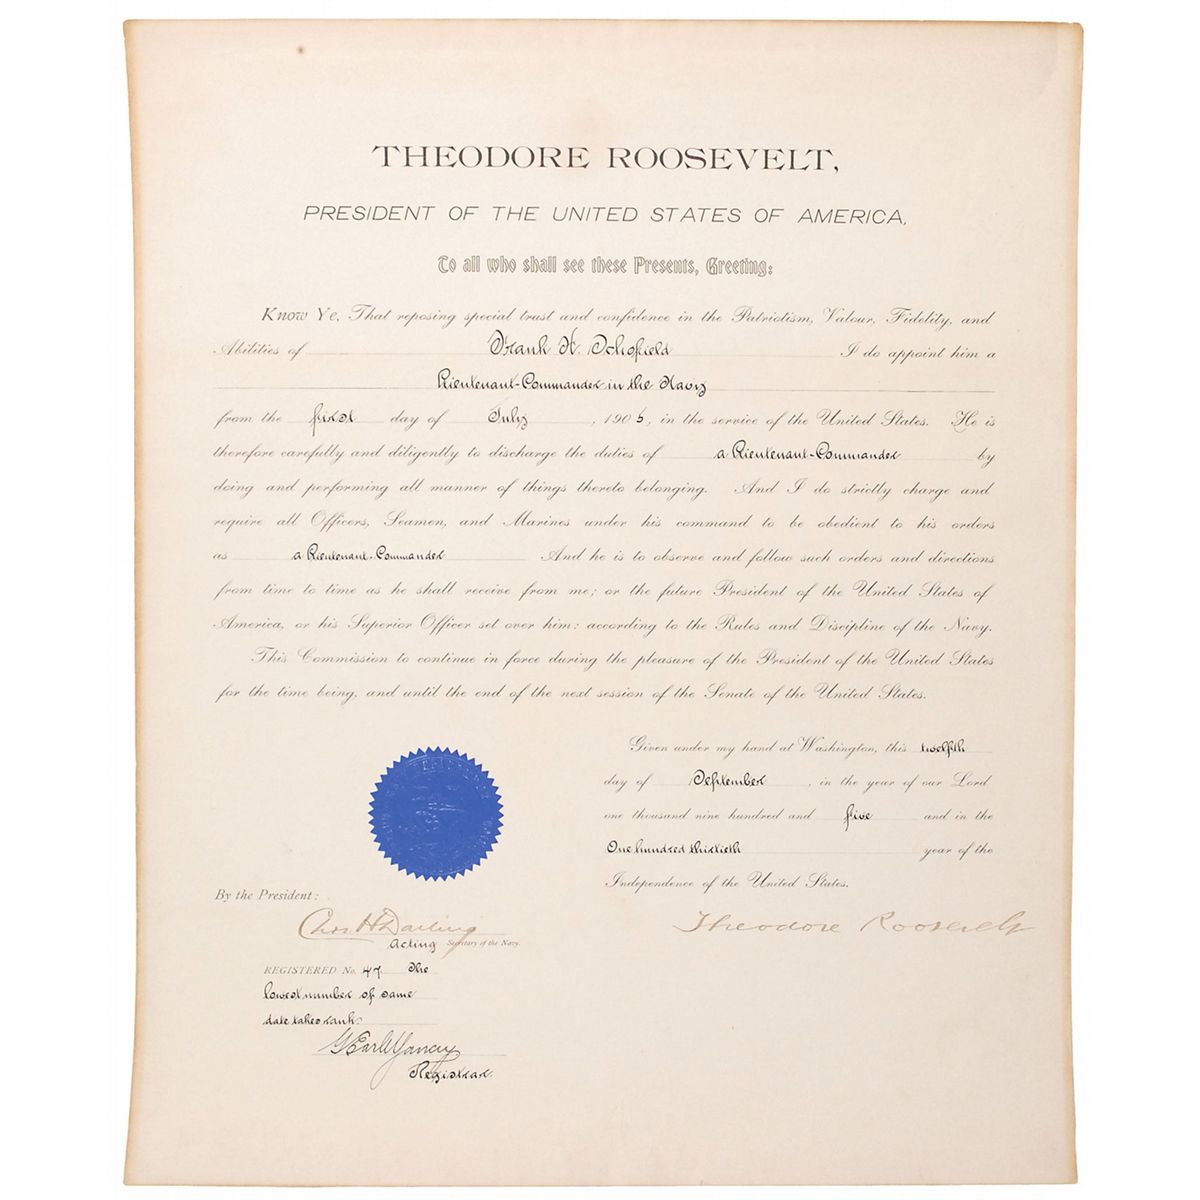 THEODORE ROOSEVELT,
PRESIDENT OF THE UNITED STATES OF AMERICA,
To all who shall see these Presents, Greeting:
Know Ye, That reposing special trust and confidence in the Patriotism, Valour, Fidelity, and
Abilities of Frank H. Schofield I do appoint him a
Lieutenant-Commander in the Navy
from the first day of July, 1905, in the service of the United States. He is
therefore carefully and diligently to discharge the duties of a Lieutenant-Commander by
doing and performing all manner of things thereto belonging. And I do strictly charge and
require all Officers, Seamen, and Marines under his command to be obedient to his orders
as a Lieutenant-Commander And he is to observe and follow such orders and directions
from time to time as he shall receive from me; or the future President of the United States of
America, or his Superior Officer set over him: according to the Rules and Discipline of the Navy.
This Commission to continue in force during the pleasure of the President of the United States
for the time being, and until the end of the next session of the Senate of the United States.
Given under my hand at Washington, this twelfth
day of September, in the year of our Lord
one thousand nine hundred and five and in the
One hundred thirtieth year of the
Independence of the United States.
Theodore Roosevelt
By the President:
Chas H Darling
Acting Secretary of the Navy.
REGISTERED No. 47. The
lowest number of same
date takes rank.
Registrar.